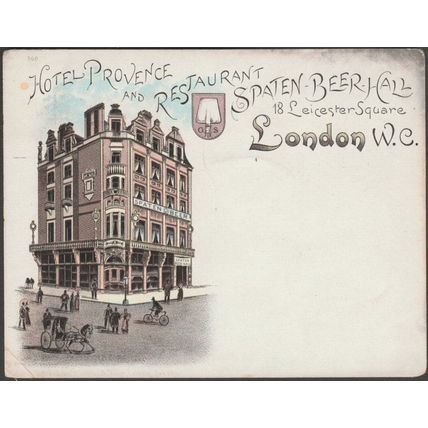 560
HOTEL PROVENCE
AND RESTAURANT
SPATEN-BEER-HALL
18 Leicester Square
London W.C.
G S
SPATENBEER